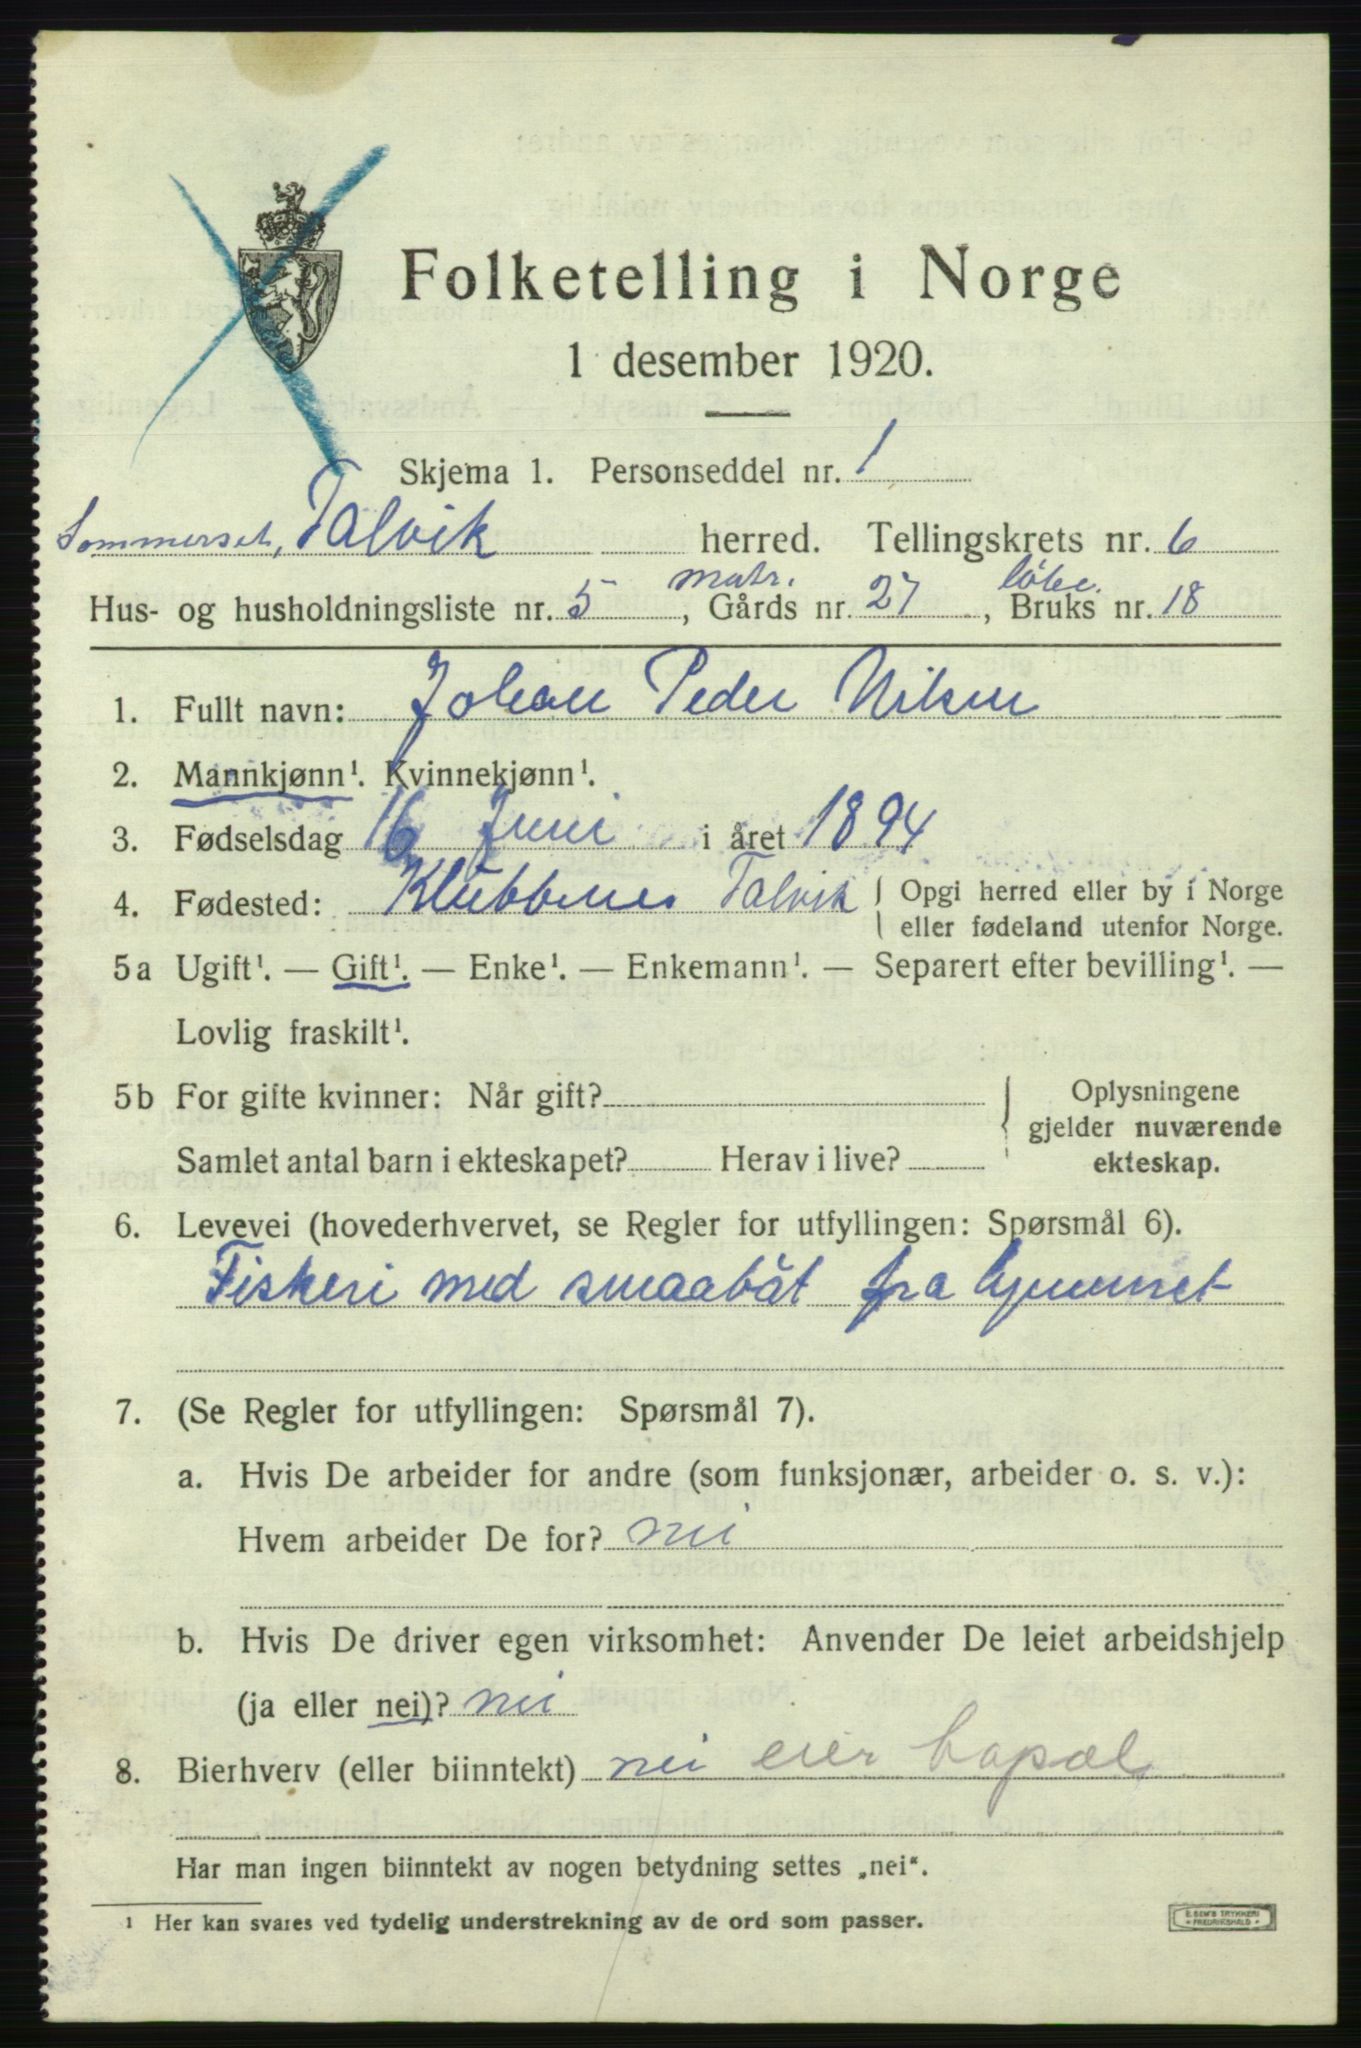 Folketelling i Norge
1 desember 1920.
Skjema 1. Personseddel nr. 1
Sommerset, Talvik herred. Tellingskrets nr. 6
matr. løbe.
Hus- og husholdningsliste nr. 5, Gårds nr. 27, Bruks nr. 18
1. Fullt navn: Johan Peder Nilsen
2. Mannkjønn¹. Kvinnekjønn¹.
3. Fødselsdag 16 Juni i året 1894
4. Fødested: Klubbnes Talvik { Opgi herred eller by i Norge
eller fødeland utenfor Norge.
5a Ugift¹. — Gift¹. — Enke¹. — Enkemann¹. — Separert efter bevilling¹. —
Lovlig fraskilt¹.
5b For gifte kvinner: Når gift? Oplysningene
gjelder nuværende
Samlet antal barn i ekteskapet? Herav i live? ekteskap.
6. Levevei (hovederhvervet, se Regler for utfyllingen: Spørsmål 6).
Fiskeri med smaabåt fra hjemmet
7. (Se Regler for utfyllingen: Spørsmål 7).
a. Hvis De arbeider for andre (som funksjonær, arbeider o. s. v.):
Hvem arbeider De for? nei
b. Hvis De driver egen virksomhet: Anvender De leiet arbeidshjelp
(ja eller nei)? nei
8. Bierhverv (eller biinntekt) nei eier
Har man ingen biinntekt av nogen betydning settes „nei“.
¹ Her kan svares ved tydelig understrekning av de ord som passer.
E. SEM'S TRYKKERI
FREDRIKSHALD